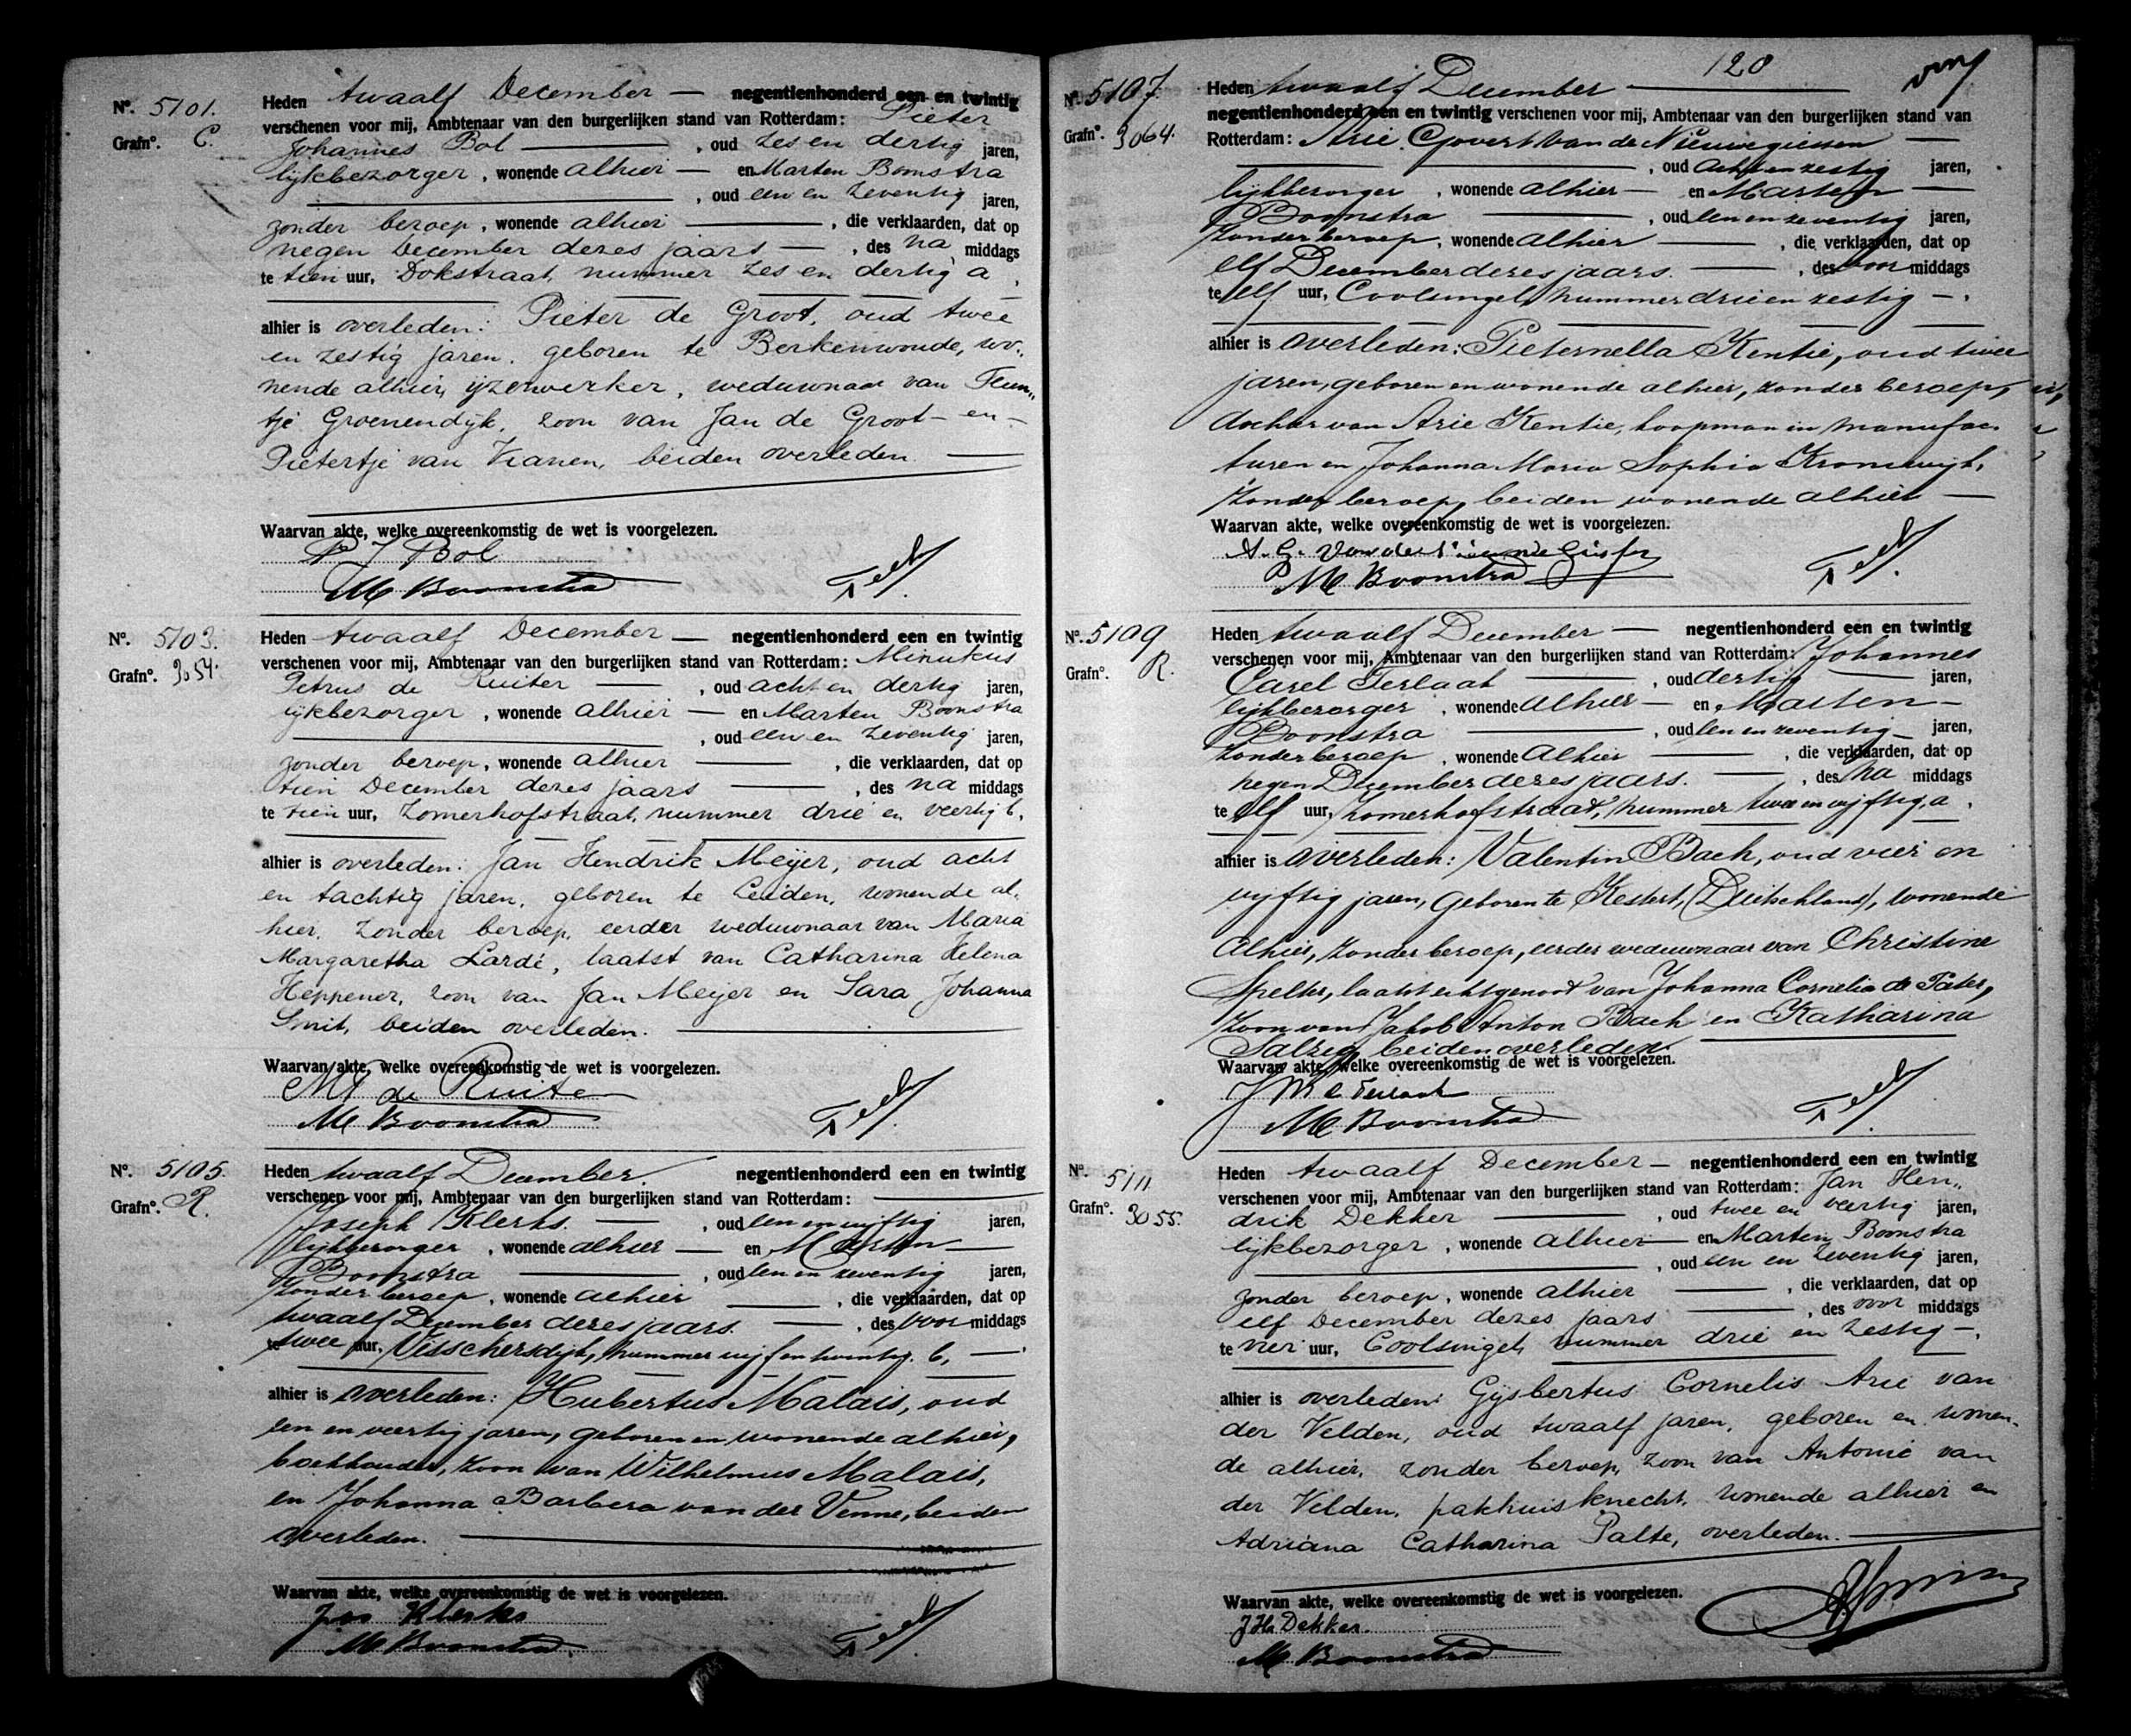 Nº. 5101.
Grafnº. C.
Heden twaalf December — negentienhonderd een en twintig
verschenen voor mij, Ambtenaar van den burgerlijken stand van Rotterdam: Pieter
Johannes Bol —, oud zes en dertig jaren,
lijkbezorger, wonende alhier — en Marten Boonstra
—, oud een en zeventig jaren,
zonder beroep, wonende alhier —, die verklaarden, dat op
negen December dezes jaars —, des na middags
te tien uur, Dokstraat, nummer zes en dertig a,
alhier is overleden: Pieter de Groot, oud twee
en zestig jaren, geboren te Berkenwoude, wo„
nende alhier, ijzerwerker, weduwnaar van Teun„
tje Groenendijk, zoon van Jan de Groot — en —
Pietertje van Vianen, beiden overleden. —
Waarvan akte, welke overeenkomstig de wet is voorgelezen.
P J Bol
M Boonstra
Nº. 5103.
Grafnº. 3054.
Heden twaalf December — negentienhonderd een en twintig
verschenen voor mij, Ambtenaar van den burgerlijken stand van Rotterdam: Minutus
Petrus de Ruiter —, oud acht en dertig jaren,
lijkbezorger, wonende alhier — en Marten Boonstra
—, oud een en zeventig jaren,
zonder beroep, wonende alhier —, die verklaarden, dat op
tien December dezes jaars —, des na middags
te tien uur, Zomerhofstraat, nummer drie en veertig b,
alhier is overleden: Jan Hendrik Meijer, oud acht
en tachtig jaren, geboren te Leiden, wonende al„
hier, zonder beroep, eerder weduwnaar van Maria
Margaretha Lardé, laatst van Catharina Helena
Heppener, zoon van Jan Meijer en Sara Johanna
Smit, beiden overleden. —
Waarvan akte, welke overeenkomstig de wet is voorgelezen.
M P de Ruiter
M Boonstra
Nº. 5105.
Grafnº. R.
Heden twaalf December. negentienhonderd een en twintig
verschenen voor mij, Ambtenaar van den burgerlijken stand van Rotterdam: —
Joseph Klerks. —, oud een en vijftig jaren,
lijkbezorger, wonende alhier — en Marten —
Boonstra —, oud een en zeventig jaren,
zonder beroep, wonende alhier —, die verklaarden, dat op
twaalf December dezes jaars. —, des voor middags
te twee uur, Visschersdijk, nummer vijf en twintig b, —.
alhier is overleden: Hubertus Malais, oud
een en veertig jaren, geboren en wonende alhier,
boekhouder, zoon van Wilhelmus Malais,
en Johanna Barbera van der Venne, beiden
overleden. —
Waarvan akte, welke overeenkomstig de wet is voorgelezen.
Jos Klerks
M Boonstra
120
Nº. 5107.
Grafnº. 3064.
Heden twaalf December —
negentienhonderd een en twintig verschenen voor mij, Ambtenaar van den burgerlijken stand van
Rotterdam: Arie Govert van de Nieuwegiessen —
—, oud acht en zestig jaren,
lijkbezorger, wonende alhier — en Marten —
Boonstra —, oud een en zeventig jaren,
zonder beroep, wonende alhier —, die verklaarden, dat op
elf December dezes jaars. —, des voor middags
te elf uur, Coolsingel, nummer drie en zestig —.
alhier is overleden: Pieternella Kentie, oud twee
jaren, geboren en wonende alhier, zonder beroep,
dochter van Arie Kentie, koopman in manufac„
turen en Johanna Maria Sophia Kronswijk,
zonder beroep, beiden wonende alhier —
Waarvan akte, welke overeenkomstig de wet is voorgelezen.
A. G. van de Nieuwe Giessen
M Boonstra
Nº. 5109
Grafnº. R.
Heden twaalf December — negentienhonderd een en twintig
verschenen voor mij, Ambtenaar van den burgerlijken stand van Rotterdam: Johannes
Carel Terlaak —, oud dertig — jaren,
lijkbezorger, wonende alhier — en Marten —
Boonstra —, oud een en zeventig — jaren,
zonder beroep, wonende alhier —, die verklaarden, dat op
negen December dezes jaars. —, des na middags
te elf uur, Zomerhofstraat, nummer twee en vijftig, a.
alhier is overleden: Valentin Bach, oud vier en
vijftig jaren, geboren te Kestert, (Duitschland), wonende
alhier, zonder beroep, eerder weduwnaar van Christine
Spelter, laatst echtgenoot van Johanna Cornelia de Pater,
zoon van Jakob Anton Bach en Katharina
Salzig, beiden overleden. —
Waarvan akte, welke overeenkomstig de wet is voorgelezen.
M Boonstra
Nº. 5111
Grafnº. 3055.
Heden twaalf December — negentienhonderd een en twintig
verschenen voor mij, Ambtenaar van den burgerlijken stand van Rotterdam: Jan Hen„
drik Dekker —, oud twee en veertig jaren,
lijkbezorger, wonende alhier — en Marten Boonstra
—, oud een en zeventig jaren,
zonder beroep, wonende alhier —, die verklaarden, dat op
elf December dezes jaars —, des voor middags
te vier uur, Coolsingel, nummer drie en zestig —.
alhier is overleden: Gijsbertus Cornelis Arie van
der Velden, oud twaalf jaren, geboren en wonen„
de alhier, zonder beroep, zoon van Antonie van
der Velden, pakhuisknecht, wonende alhier en
Adriana Catharina Palte, overleden. —
Waarvan akte, welke overeenkomstig de wet is voorgelezen.
J H Dekker.
M Boonstra